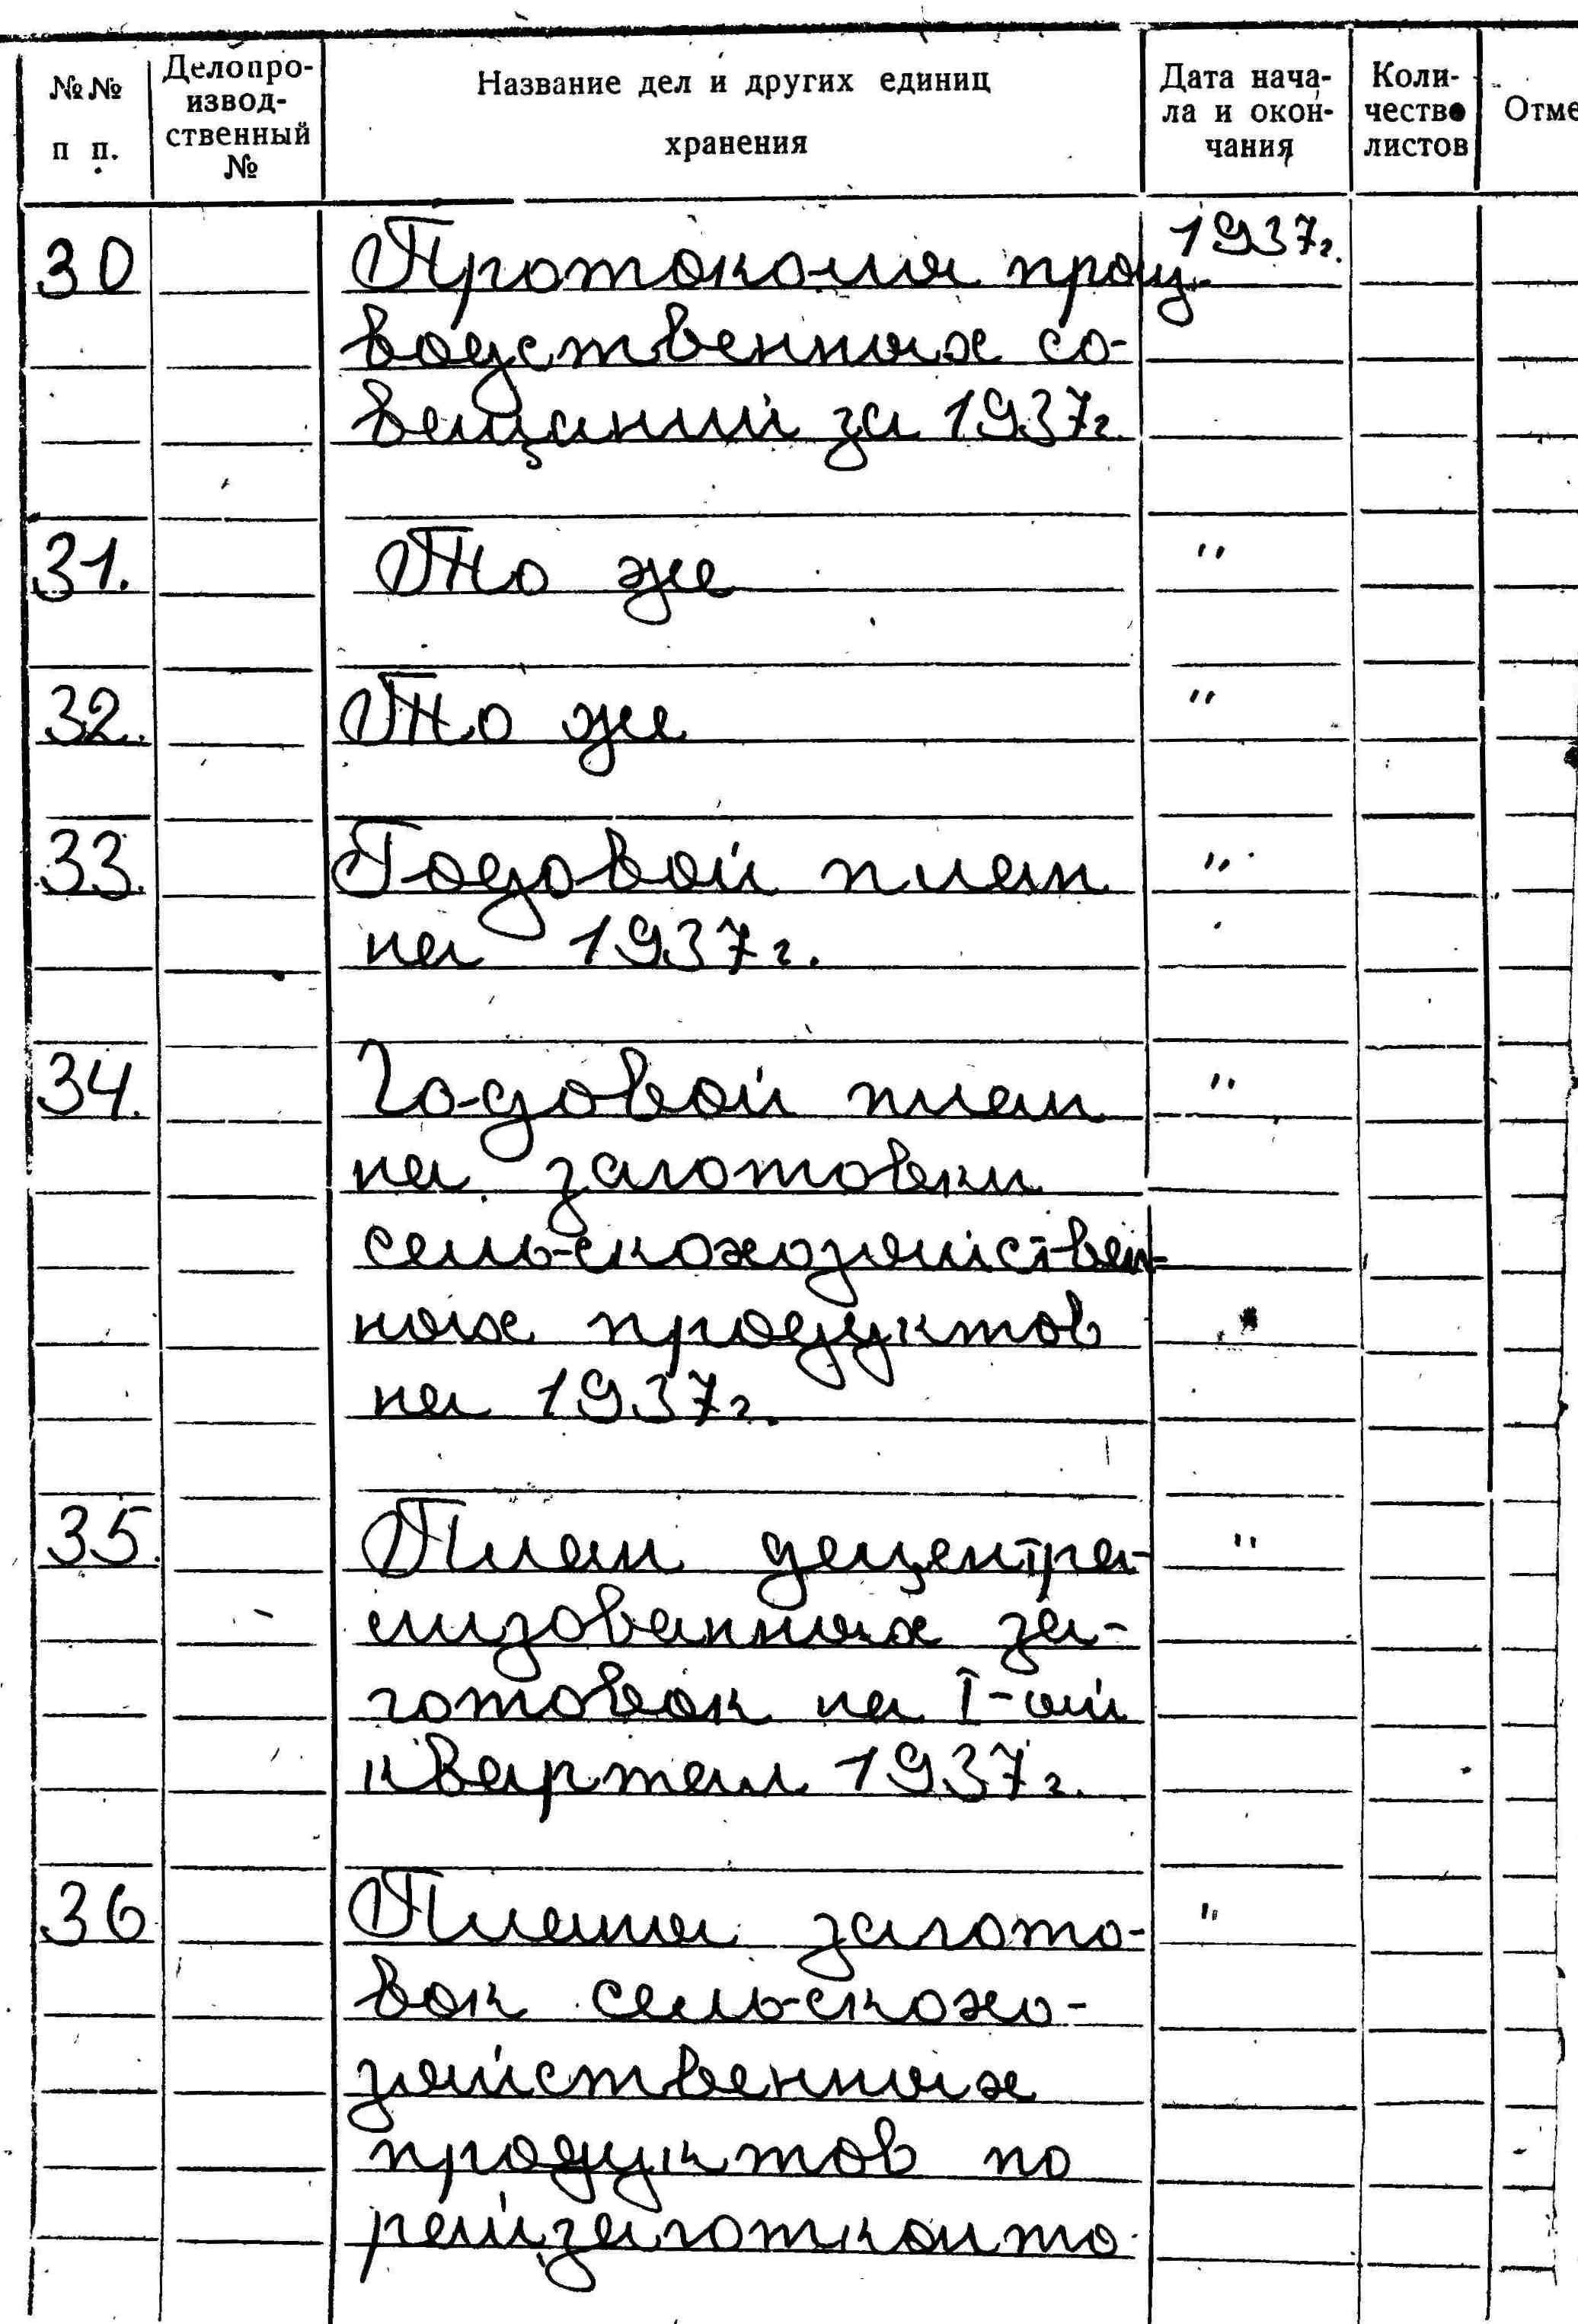 №№ п п. Делопро-извод-ственный № Название дел и других единиц хранения Дата нача-ла и окон-чания Коли-чество листов Отме
30 Протоколы произ- 1937г.
водственных со-
вещаний за 1937г.
31. То же "
32. То же "
33. Годовой план "
на 1937г.
34. Годовой план "
на заготовки
сельскохозяйствен-
ных продуктов
на 1937г.
35. План децентра- "
лизованных за-
готовок на I-ый
квартал 1937г.
36 Планы загото- "
вок сельскохо-
зяйственных
продуктов по
райзаготконто